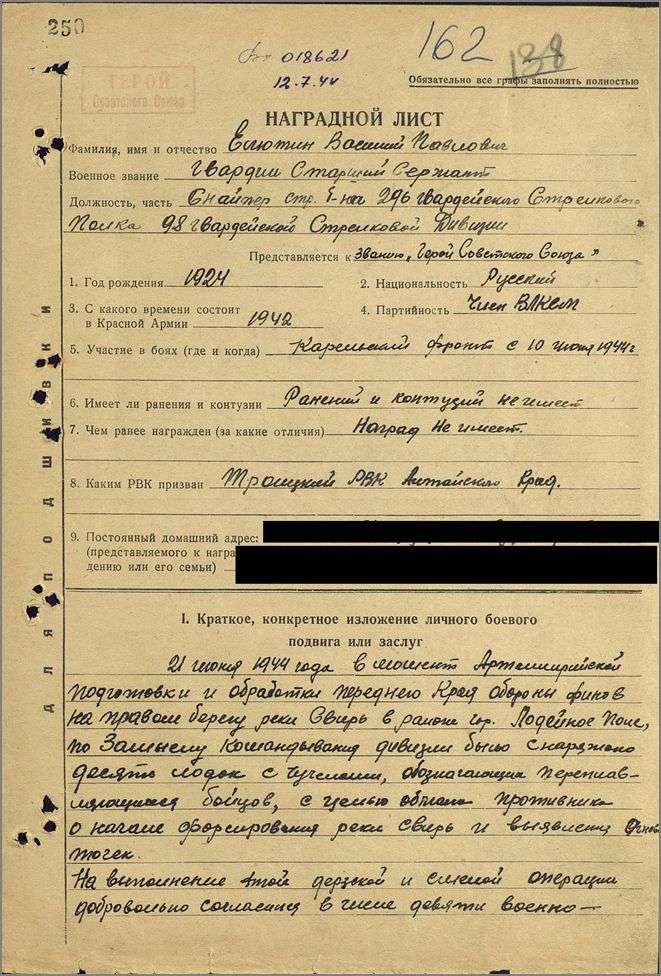 250
162
138
018621
12.7.44
Обязательно все графы заполнять полностью
ГЕРОЙ
Советского Союза
НАГРАДНОЙ ЛИСТ
Фамилия, имя и отчество Елютин Василий Павлович
Военное звание Гвардии Старший Сержант
Должность, часть Снайпер стр. б-на 296 гвардейского Стрелкового
Полка 98 гвардейской Стрелковой Дивизии
Представляется к званию „Герой Советского Союза"
1. Год рождения 1924
2. Национальность Русский
3. С какого времени состоит
в Красной Армии 1942
4. Партийность Член ВЛКСМ
5. Участие в боях (где и когда) Карельский фронт с 10 июня 1944г
6. Имеет ли ранения и контузии Ранений и контузий не имеет
7. Чем ранее награжден (за какие отличия) Наград не имеет.
8. Каким РВК призван Троицкий РВК Алтайского Края.
9. Постоянный домашний адрес:
(представляемого к награ
дению или его семьи)
I. Краткое, конкретное изложение личного боевого
подвига или заслуг
21 июня 1944 года в момент Артиллирийской
подготовки и обработки переднего Края обороны финов
на правом берегу реки Свирь в районе гор. Лодейное Поле,
по Замыслу Командывания дивизии было снаряжено
десять лодок с чучелами, обозначающих переплав-
ляющихся бойцов, с целью обмана противника
о начале форсирования реки Свирь и выявления огнев
точек.
На выполнение этой дерзской и смелой операции
добровольно согласился в числе девяти военно-
для подшивки